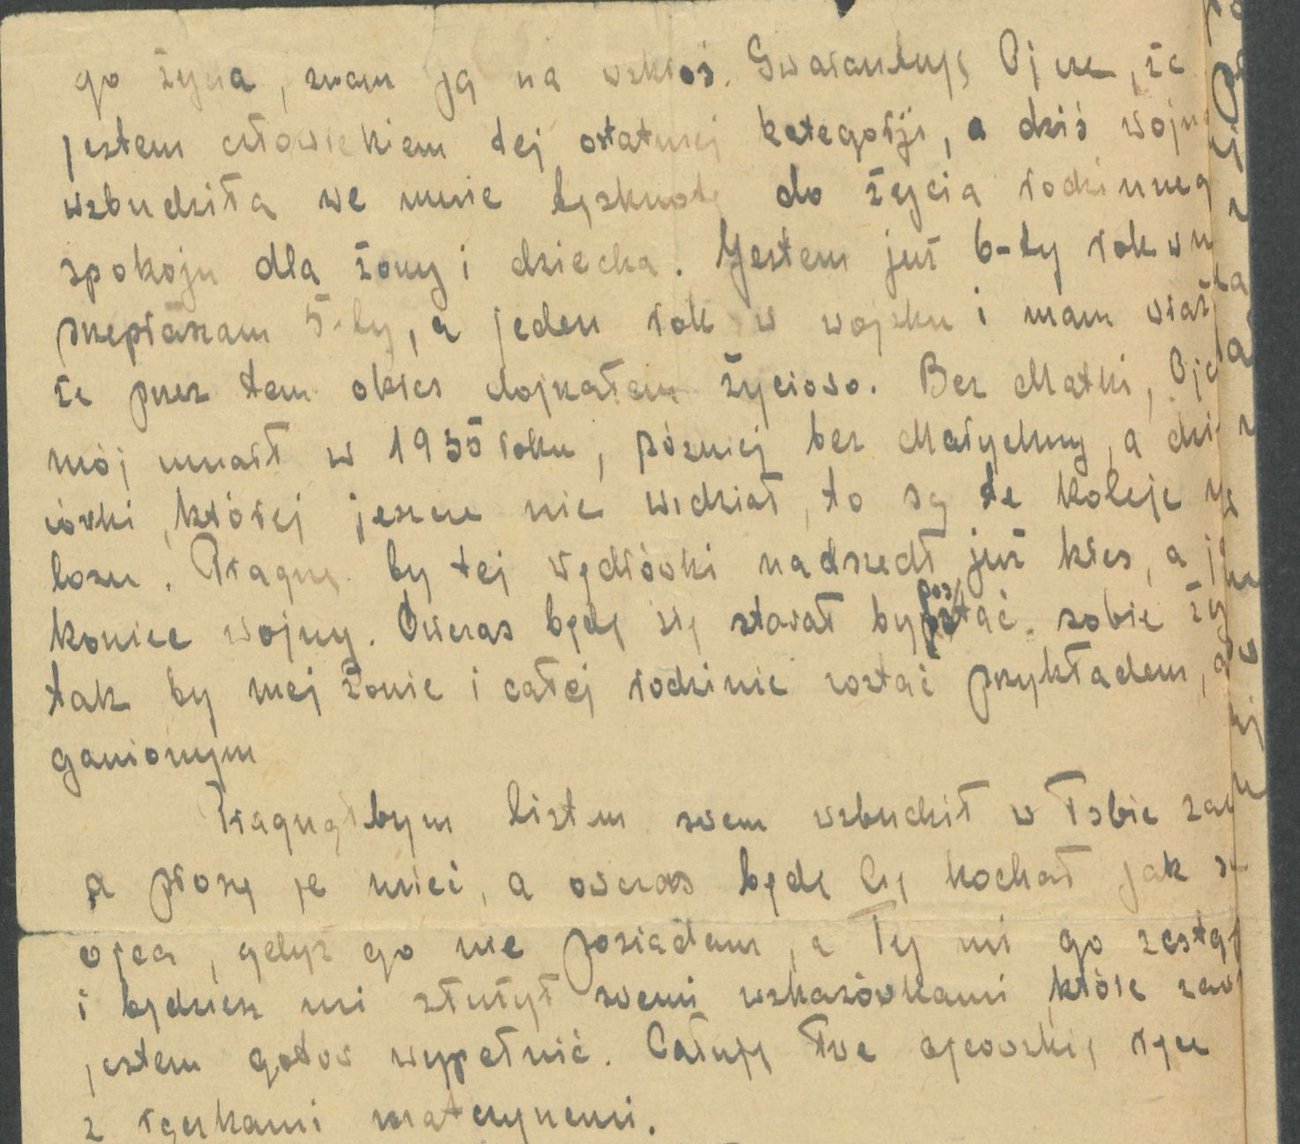 go życia, znam ją na wzkroś. Gwarantuję Ojcze, że
jestem człowiekiem tej ostatniej kategorji, a dziś wojn
wzbudziła we mnie tęsknotę do życia rodzinneg
spokoju dla żony i dziecka. Jestem już 6-ty rok w n
przepraszam 5-ty, a jeden rok w wojsku i mam wraż
że przez ten okres dojrzałem życiowo. Bez Matki, Ojc
mój umarł w 1935 roku, później bez Marychny, a dzi
córki, której jeszcze nie widział, to są te koleje
losu. Pragnę by tej wędrówki nadszedł już kres, a
koniec wojny. Ówczas będę się starał by postać sobie ży
tak by mej żonie i całej rodzinie zostać przykładem,
ganionym
Pragnąłbym listem swem wzbudził w Tobie zau
a proszę je mieć, a owczas będę Cię kochał jak s
ojca, gdyż go nie posiadam, a Ty mi go zastąp
i będziesz mi służył swemi wskazówkami, które zaw
jestem gotów wypełnić. Całuję Twe ojcowskie ręce
z rączkami matczynemi.